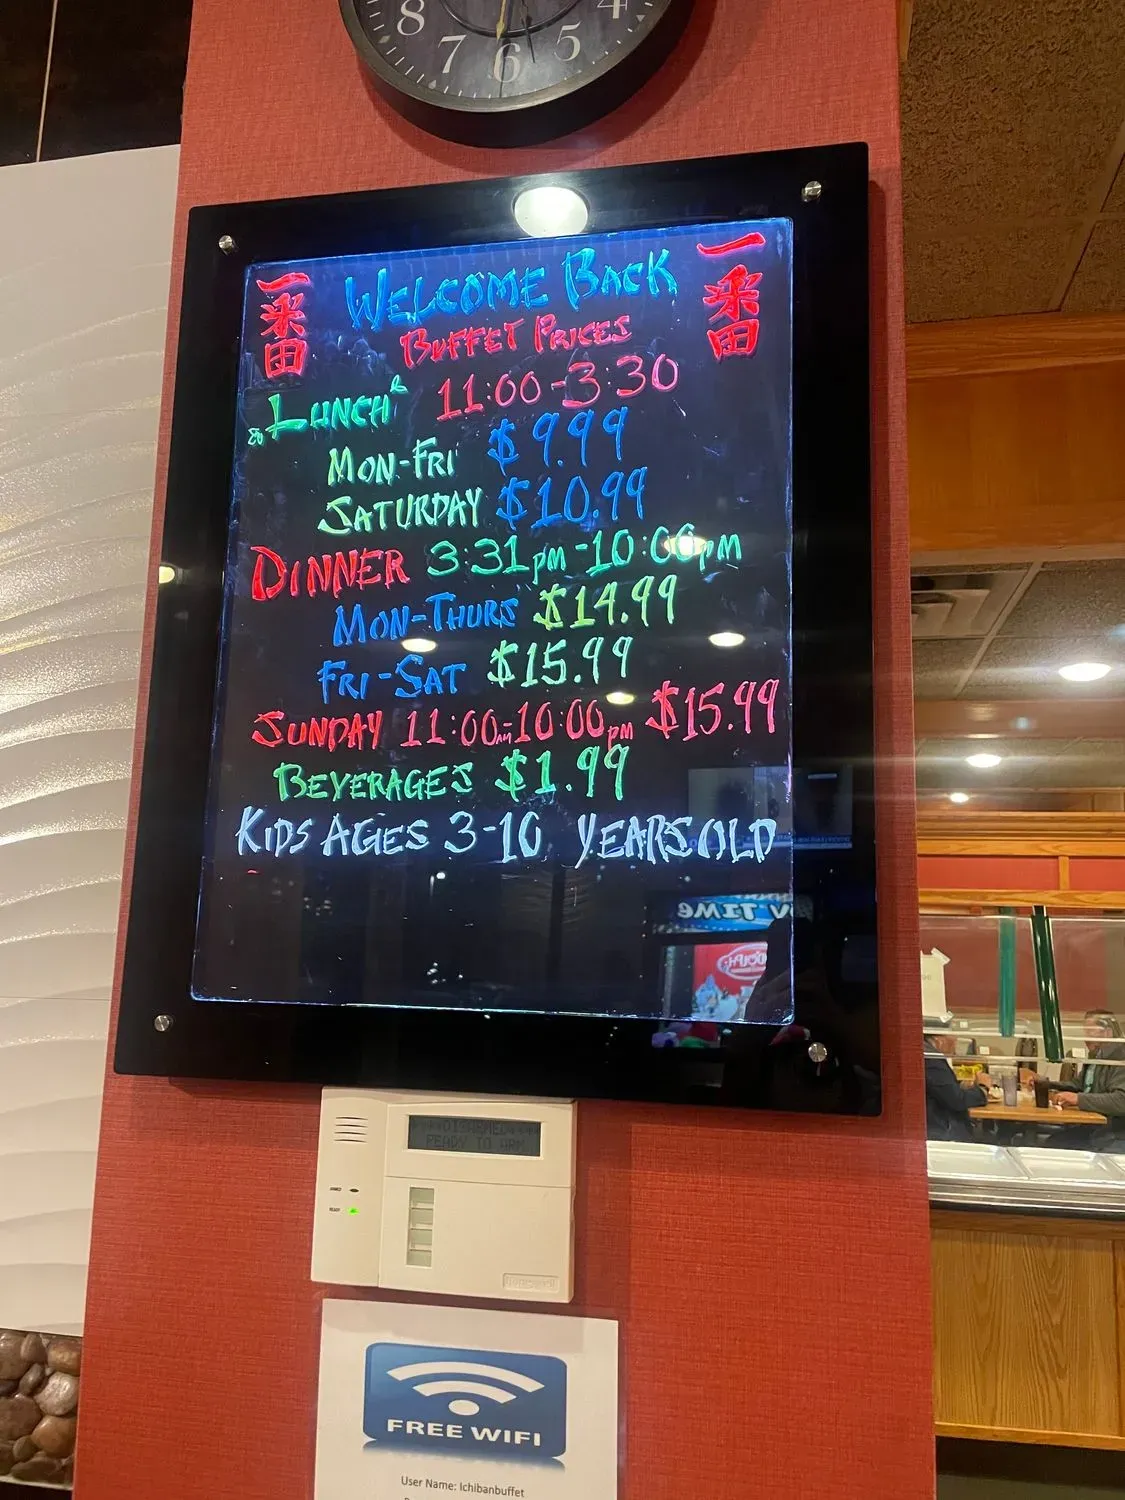 8 7 6 5 4
一番
WELCOME BACK
一番
BUFFET PRICES
LUNCH 11:00-3:30
MON-FRI $9.99
SATURDAY $10.99
DINNER 3:31pm-10:00pm
MON-THURS $14.99
FRI-SAT $15.99
SUNDAY 11:00am-10:00pm $15.99
BEVERAGES $1.99
KIDS AGES 3-10 YEARS OLD
TIME
DISARMED
READY TO ARM
ARMED
READY
Honeywell
FREE WIFI
User Name: Ichibanbuffet